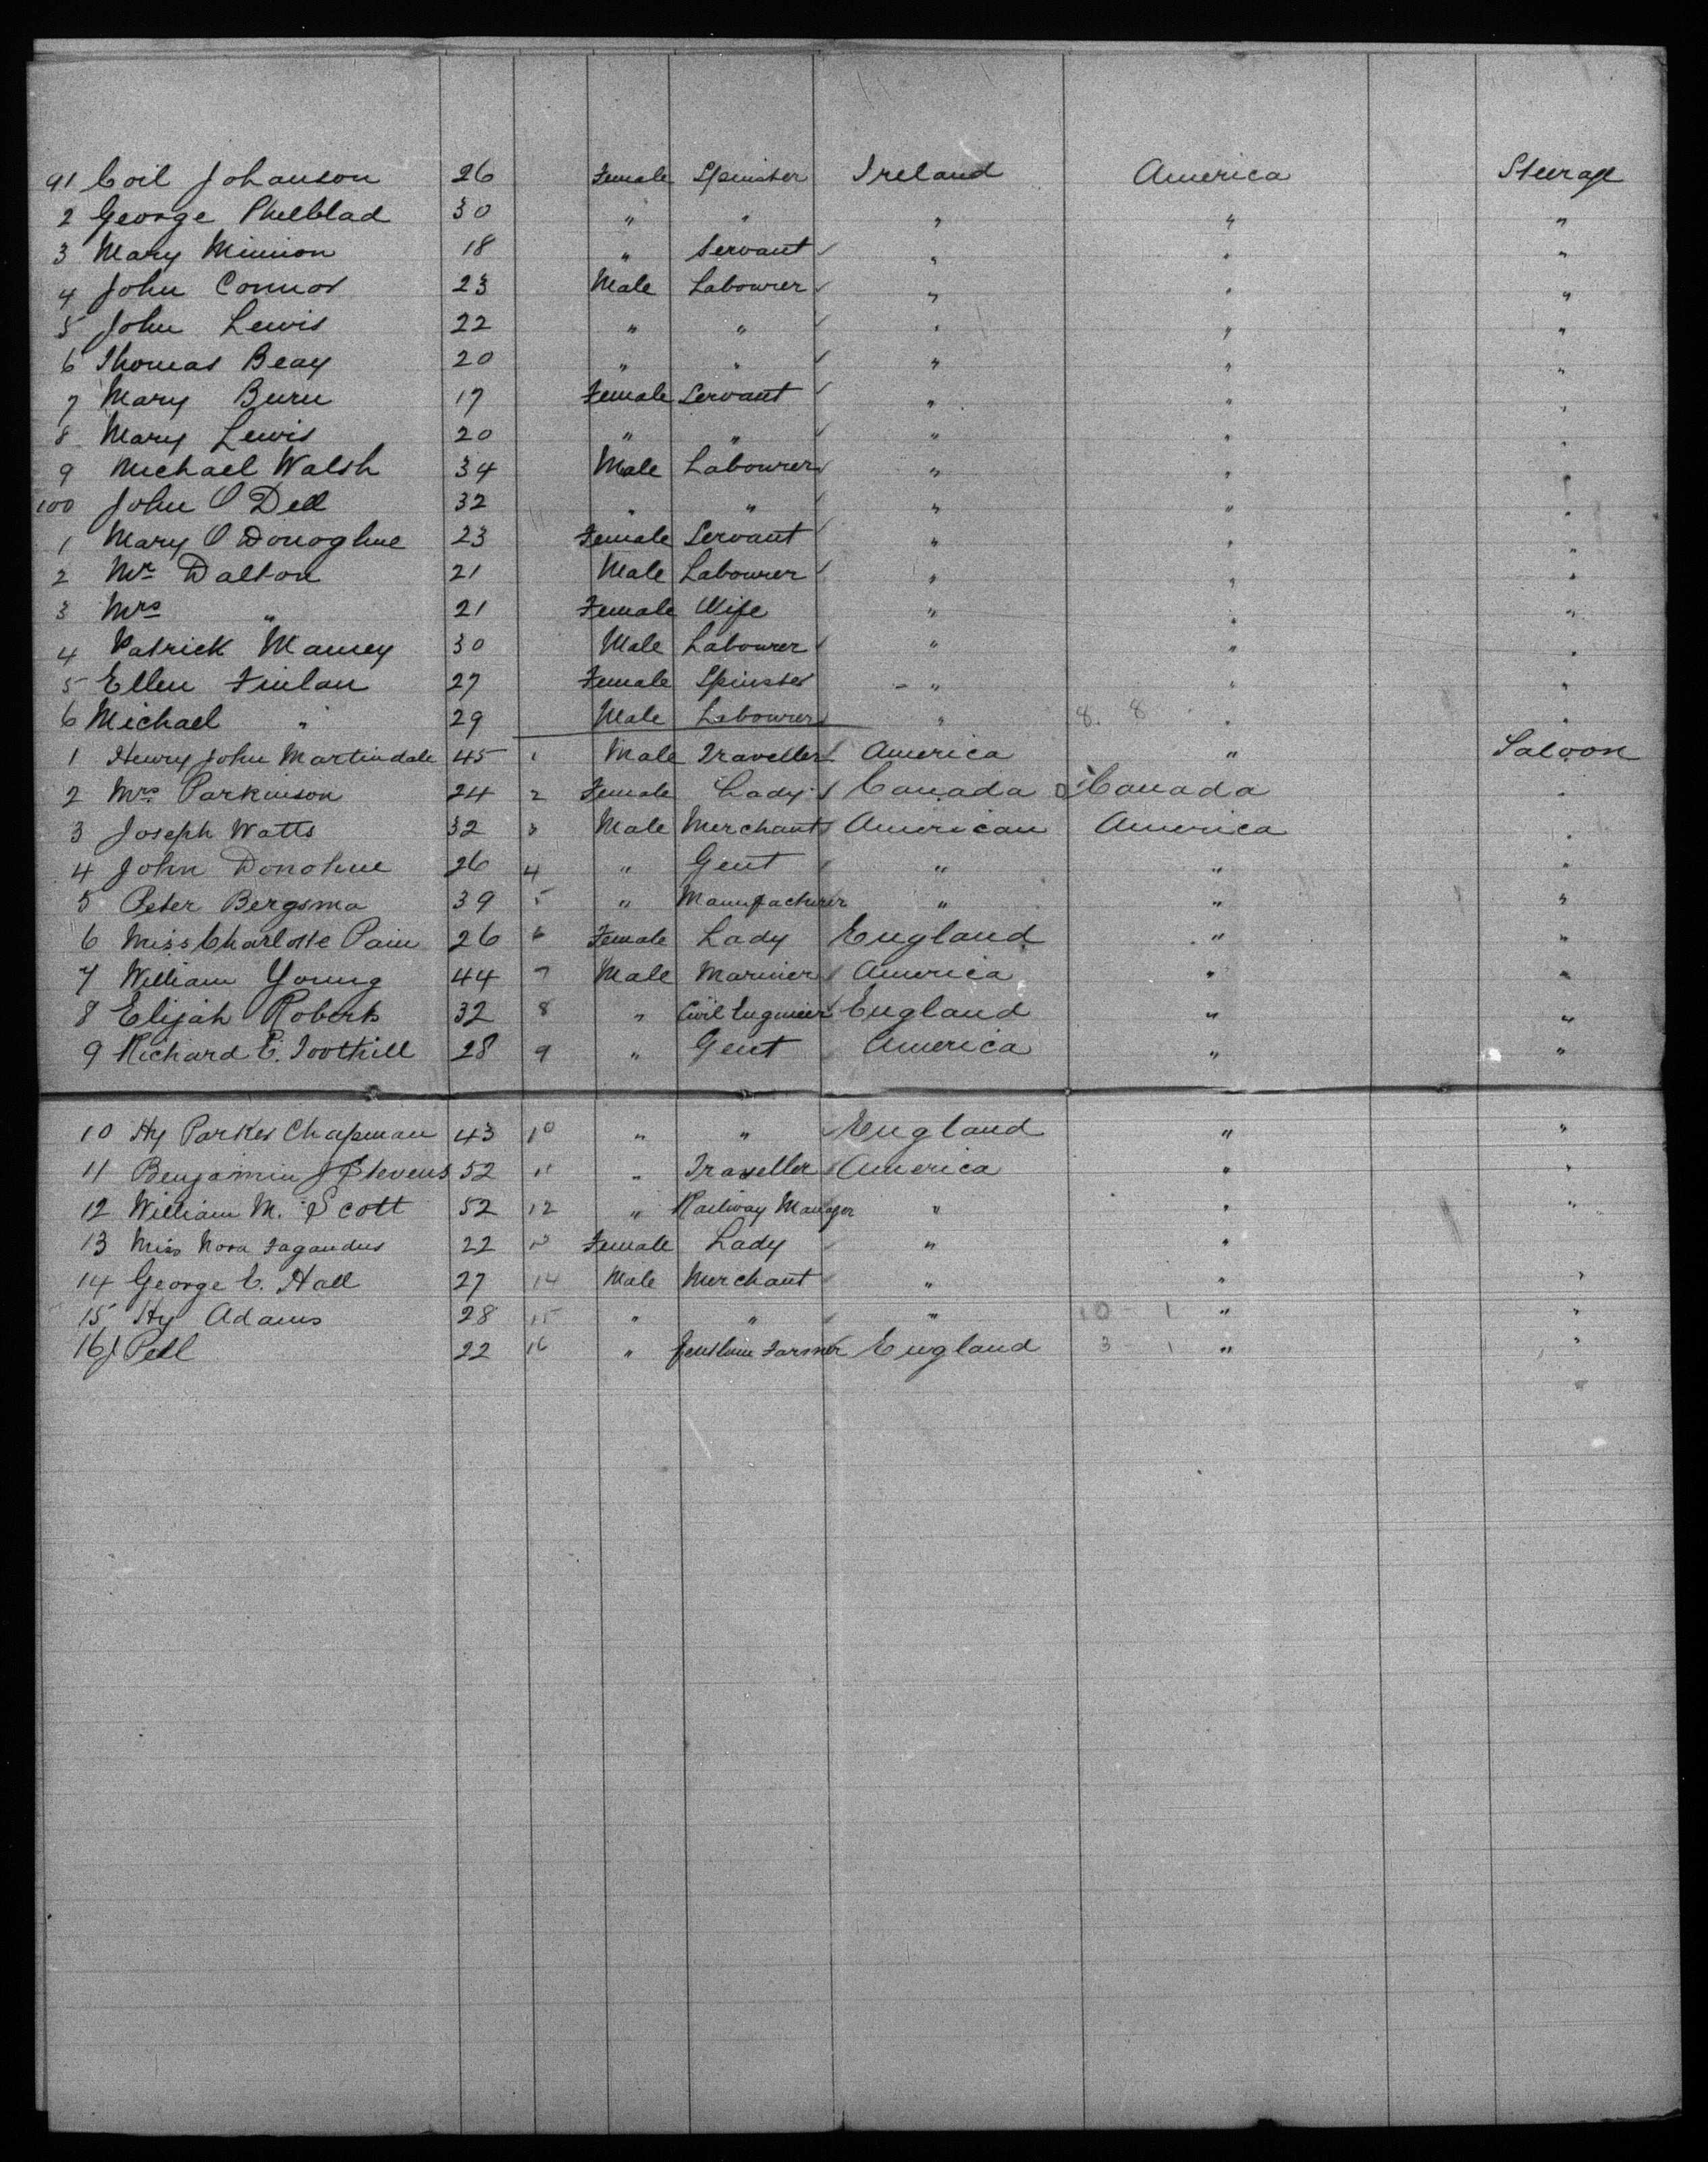 91 Coil Johanson 26 Female Spinster Ireland America Steerage
2 George Phelblad 30 " " " " "
3 Mary Minion 18 " Servant " " "
4 John Connor 23 Male Labourer " " "
5 John Lewis 22 " " " " "
6 Thomas Beay 20 " " " " "
7 Mary Burn 17 Female Servant " " "
8 Mary Lewis 20 " " " " "
9 Michael Walsh 34 Male Labourer " " "
100 John O Dell 32 " " " " "
1 Mary O Donoghue 23 Female Servant " " "
2 Mr Dalton 21 Male Labourer " " "
3 Mrs " 21 Female Wife " " "
4 Patrick Mamey 30 Male Labourer " " "
5 Ellen Finlan 27 Female Spinster " " "
6 Michael " 29 Male Labourer " 8. 8 " "
1 Henry John Martindale 45 1 Male Traveller America " Saloon
2 Mrs Parkinson 24 2 Female Lady Canada Canada "
3 Joseph Watts 32 3 Male Merchant American America "
4 John Donohue 26 4 " Gent " " "
5 Peter Bergsma 39 5 " Manufacturer " " "
6 Miss Charlotte Pain 26 6 Female Lady England " "
7 William Young 44 7 Male Mariner America " "
8 Elijah Roberts 32 8 " Civil Engineer England " "
9 Richard E. Toothill 28 9 " Gent America " "
10 Hy Parkes Chapman 43 10 " " England " "
11 Benjamin J Stevens 52 11 " Traveller America " "
12 William M. Scott 52 12 " Railway Manager " " "
13 Miss Nora Fagandus 22 13 Female Lady " "
14 George C. Hall 27 14 Male Merchant " " "
15 Hy Adams 28 15 " " " 10 - 1 " "
16 J Pell 22 16 " Farmer England 3 - 1 " "